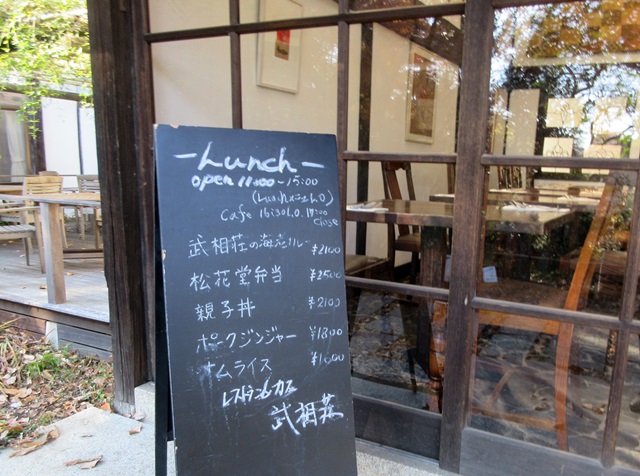 Lunch
open 11:00~15:00
Cafe 16:30 L.O. 17:00
close
武相荘の海老カレー ¥2100
松花堂弁当 ¥2500
親子丼 ¥2100
ポークジンジャー ¥1800
オムライス ¥1600
レストラン&カフェ
武相荘